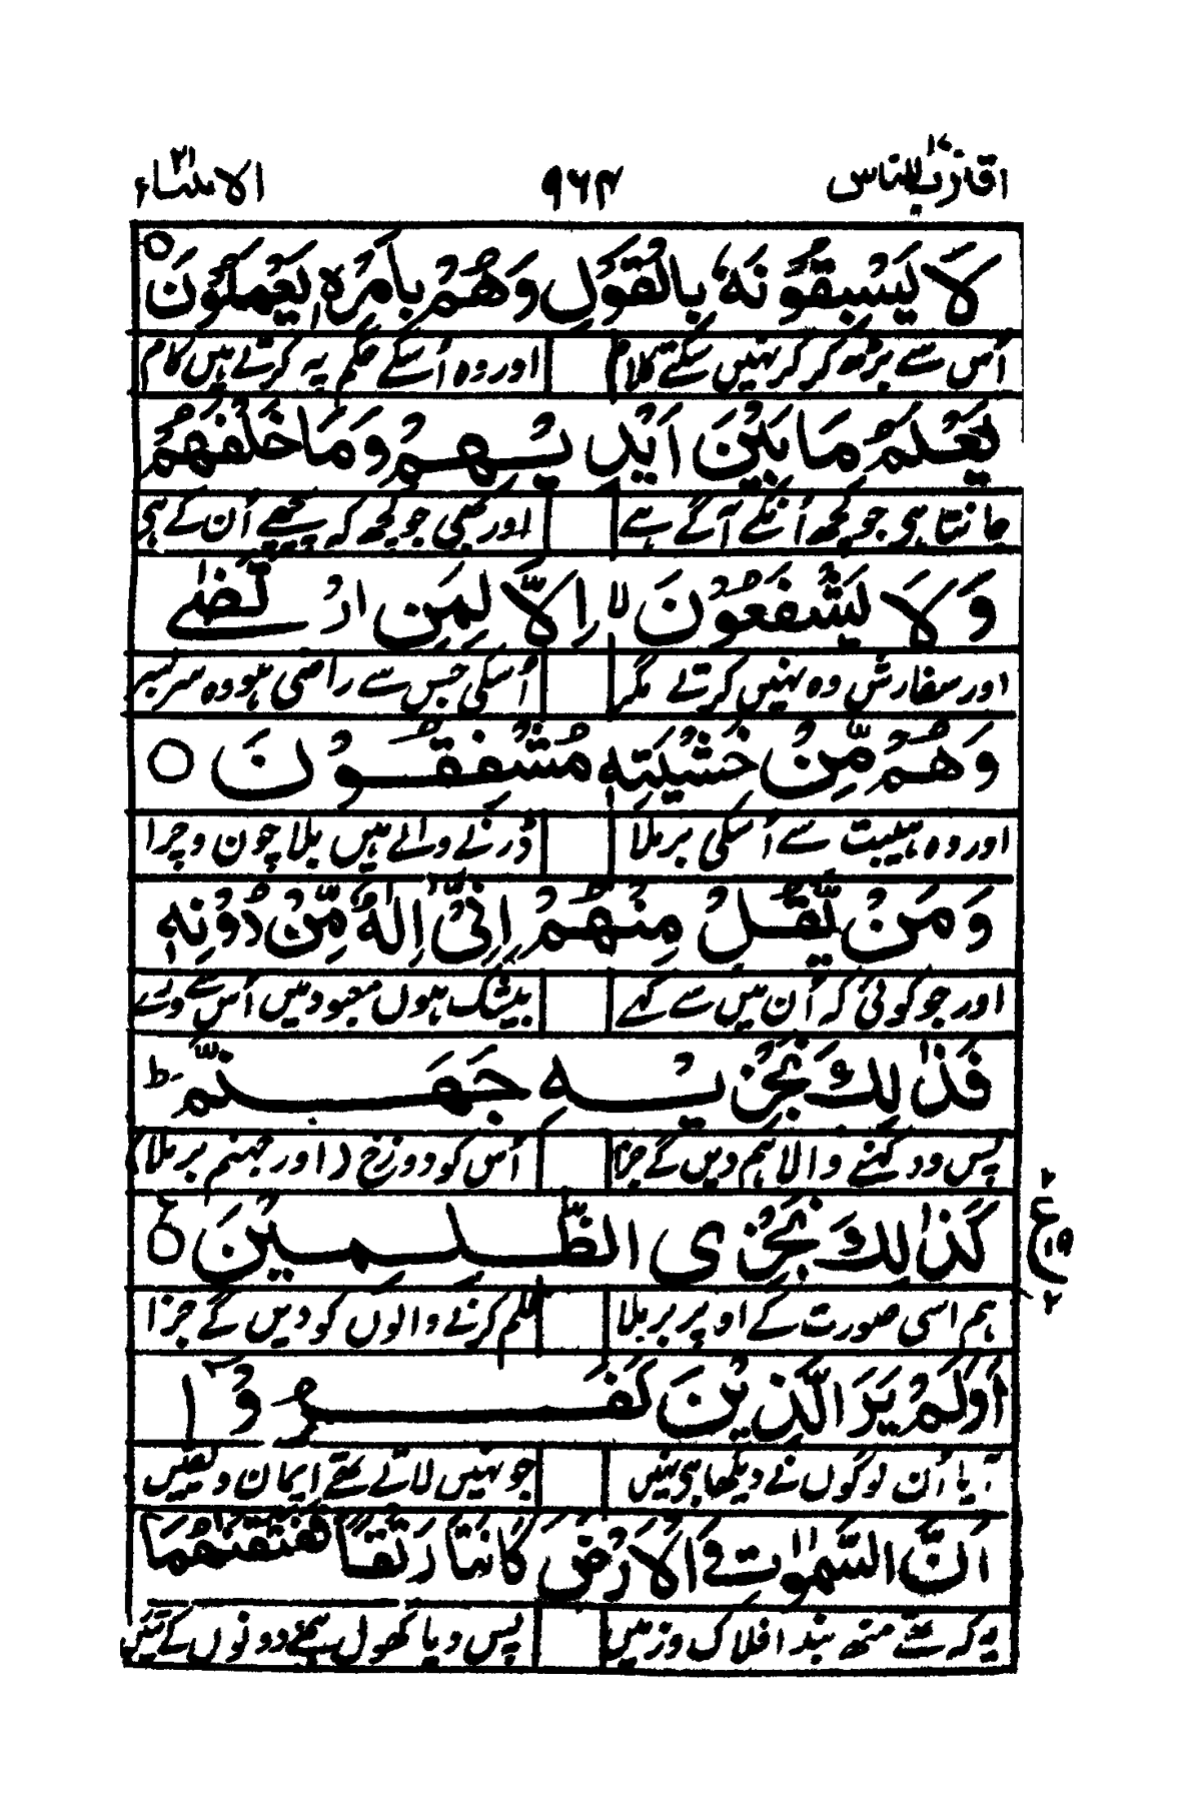 اقترب للناس ۱۷ ۹۶۴ الانبیاء ۲۱
لَا يَسْبِقُوْنَهٗ بِالْقَوْلِ وَهُمْ بِاَمْرِهٖ يَعْمَلُوْنَ ○
اُس سے بڑھ کر کر نہیں سکتے کلام اور وہ اُسکے حکم پہ کرتے ہیں کام
يَعْلَمُ مَا بَيْنَ اَيْدِيْهِمْ وَمَا خَلْفَهُمْ
جانتا ہی جو کچھ اُنکے آگے ہے اور بھی جو کچھ کہ پیچھے اُن کے ہی
وَلَا يَشْفَعُوْنَ ۙ اِلَّا لِمَنِ ارْتَضٰى
اور سفارش وہ نہیں کرتے مگر اُسکی جس سے راضی ہو وہ سربسر
وَهُمْ مِّنْ خَشْيَتِهٖ مُشْفِقُوْنَ ○
اور وہ ہیبت سے اُسکی برملا ڈرنے والے ہیں بلا چون و چرا
وَمَنْ يَّقُلْ مِنْهُمْ اِنِّيْۤ اِلٰهٌ مِّنْ دُوْنِهٖ
اور جو کوئی کہ اُن میں سے کہے بیشک ہوں معبود میں اُس سے ورے
فَذٰلِكَ نَجْزِيْهِ جَهَنَّمَ ؕ
پس وہ کہنے والا ہم دیں گے جزا اُس کو دوزخ (اور جہنم برملا)
كَذٰلِكَ نَجْزِى الظّٰلِمِيْنَ ○ ع
۲ ع ۱۹ ۲
ہم اسی صورت کے اوپر برملا ظلم کرنے والوں کو دیں گے جزا
اَوَلَمْ يَرَ الَّذِيْنَ كَفَرُوْۤا
آیا اُن لوگوں نے دیکھا ہی نہیں جو نہیں لاتے تھے ایمان و یقیں
اَنَّ السَّمٰوٰتِ وَالْاَرْضَ كَانَتَا رَتْقًا فَفَتَقْنٰهُمَا
یہ کہ تھے منھ بند افلاک و زمیں پس دیا کھول ہمنے دونوں کے تئیں